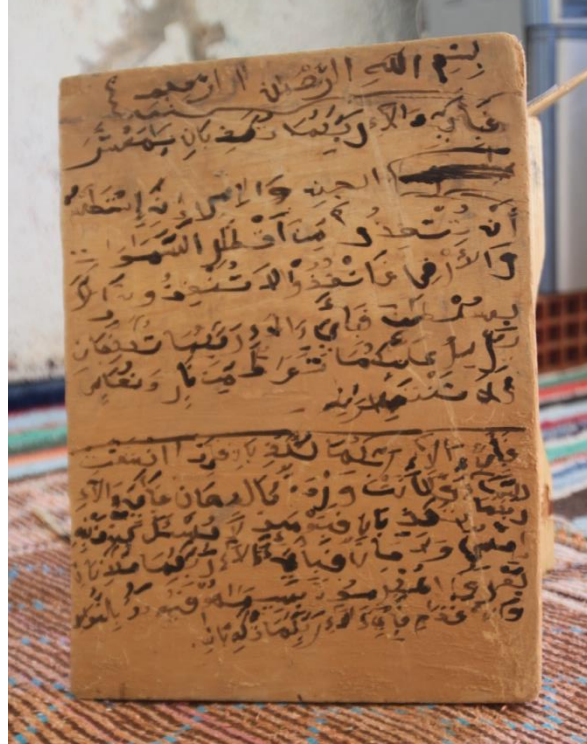 بسم الله الرحمن الرحيم
فبأي ءالاء ربكما تكذبان يمعشر
الجن والإنس إن استطعتم
أن تنفذوا من أقطار السموات
والأرض فانفذوا لا تنفذون إلا
بسلطن فبأي ءالاء ربكما تكذبان
يرسل عليكما شواظ من نار ونحاس
فلا تنتصران
فبأي ءالاء ربكما تكذبان فإذا انشقت
فكانت وردة كالدهان فبأي ءالاء
تكذبان فيومئذ لا يسئل عن ذنبه
ولا جان فبأي ءالاء ربكما تكذبان
يعرف المجرمون بسيماهم فيؤخذ بالنواصي
والأقدام فبأي ءالاء ربكما تكذبان